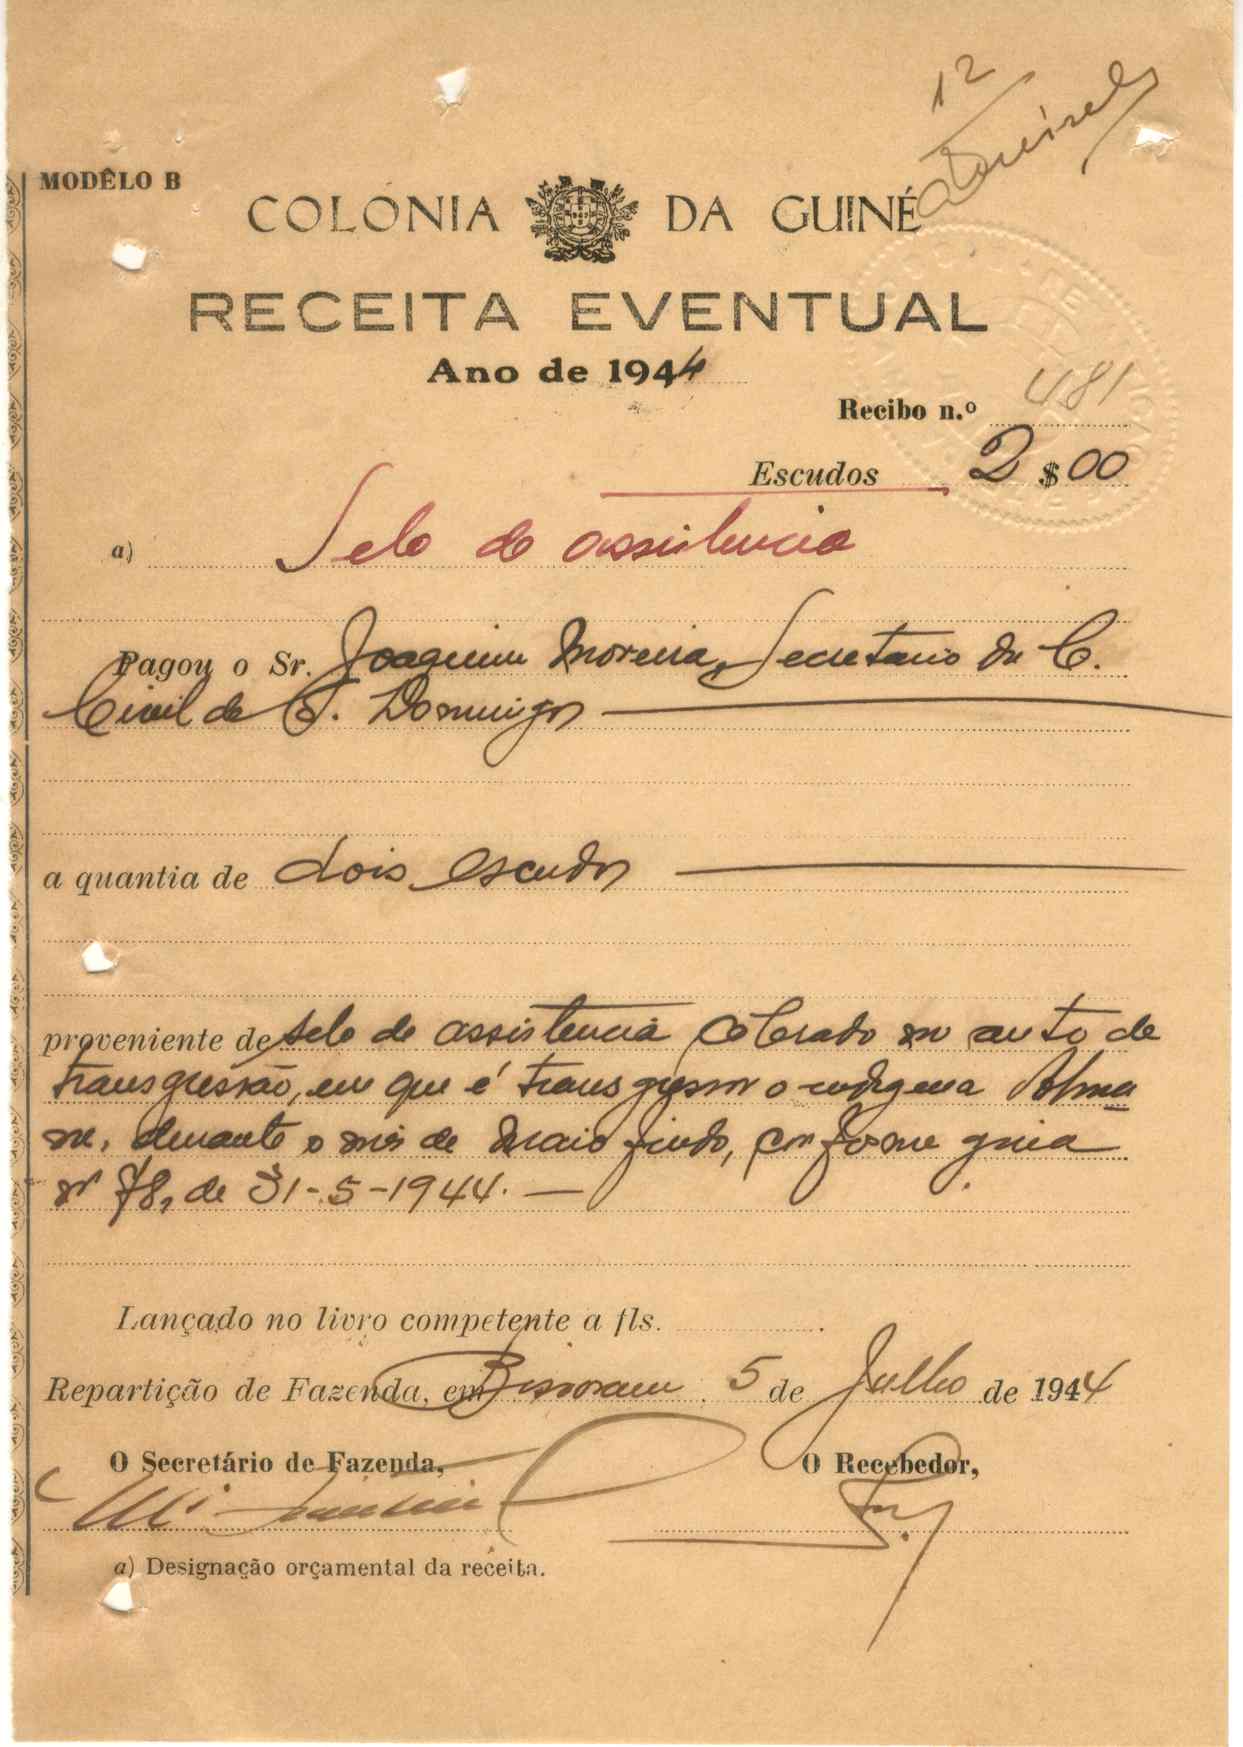 12
MODÊLO B
COLÓNIA DA GUINÉ
RECEITA EVENTUAL
Ano de 1944
Recibo n.º 481
Escudos 2 $ 00
a) Selo de assistencia
Pagou o Sr. Joaquim Moreira, Secretario da C.
Civil de S. Domingos
a quantia de dois escudos
proveniente de selo de assistencia cobrado no auto de
transgressão, em que é transgressor o indigena
durante o mês de Maio findo, conforme guia
nº 78, de 31-5-1944.
Lançado no livro competente a fls.
Repartição de Fazenda, em Bissoram 5 de Julho de 1944
O Secretário de Fazenda,
O Recebedor,
a) Designação orçamental da receita.